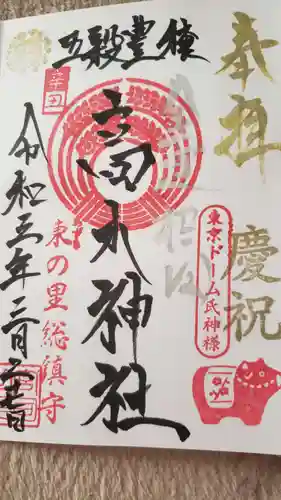 奉拝
慶祝
東京ドーム氏神様
五穀豊穣
辛丑
高木神社
東の里総鎮守
令和三年三月二十七日